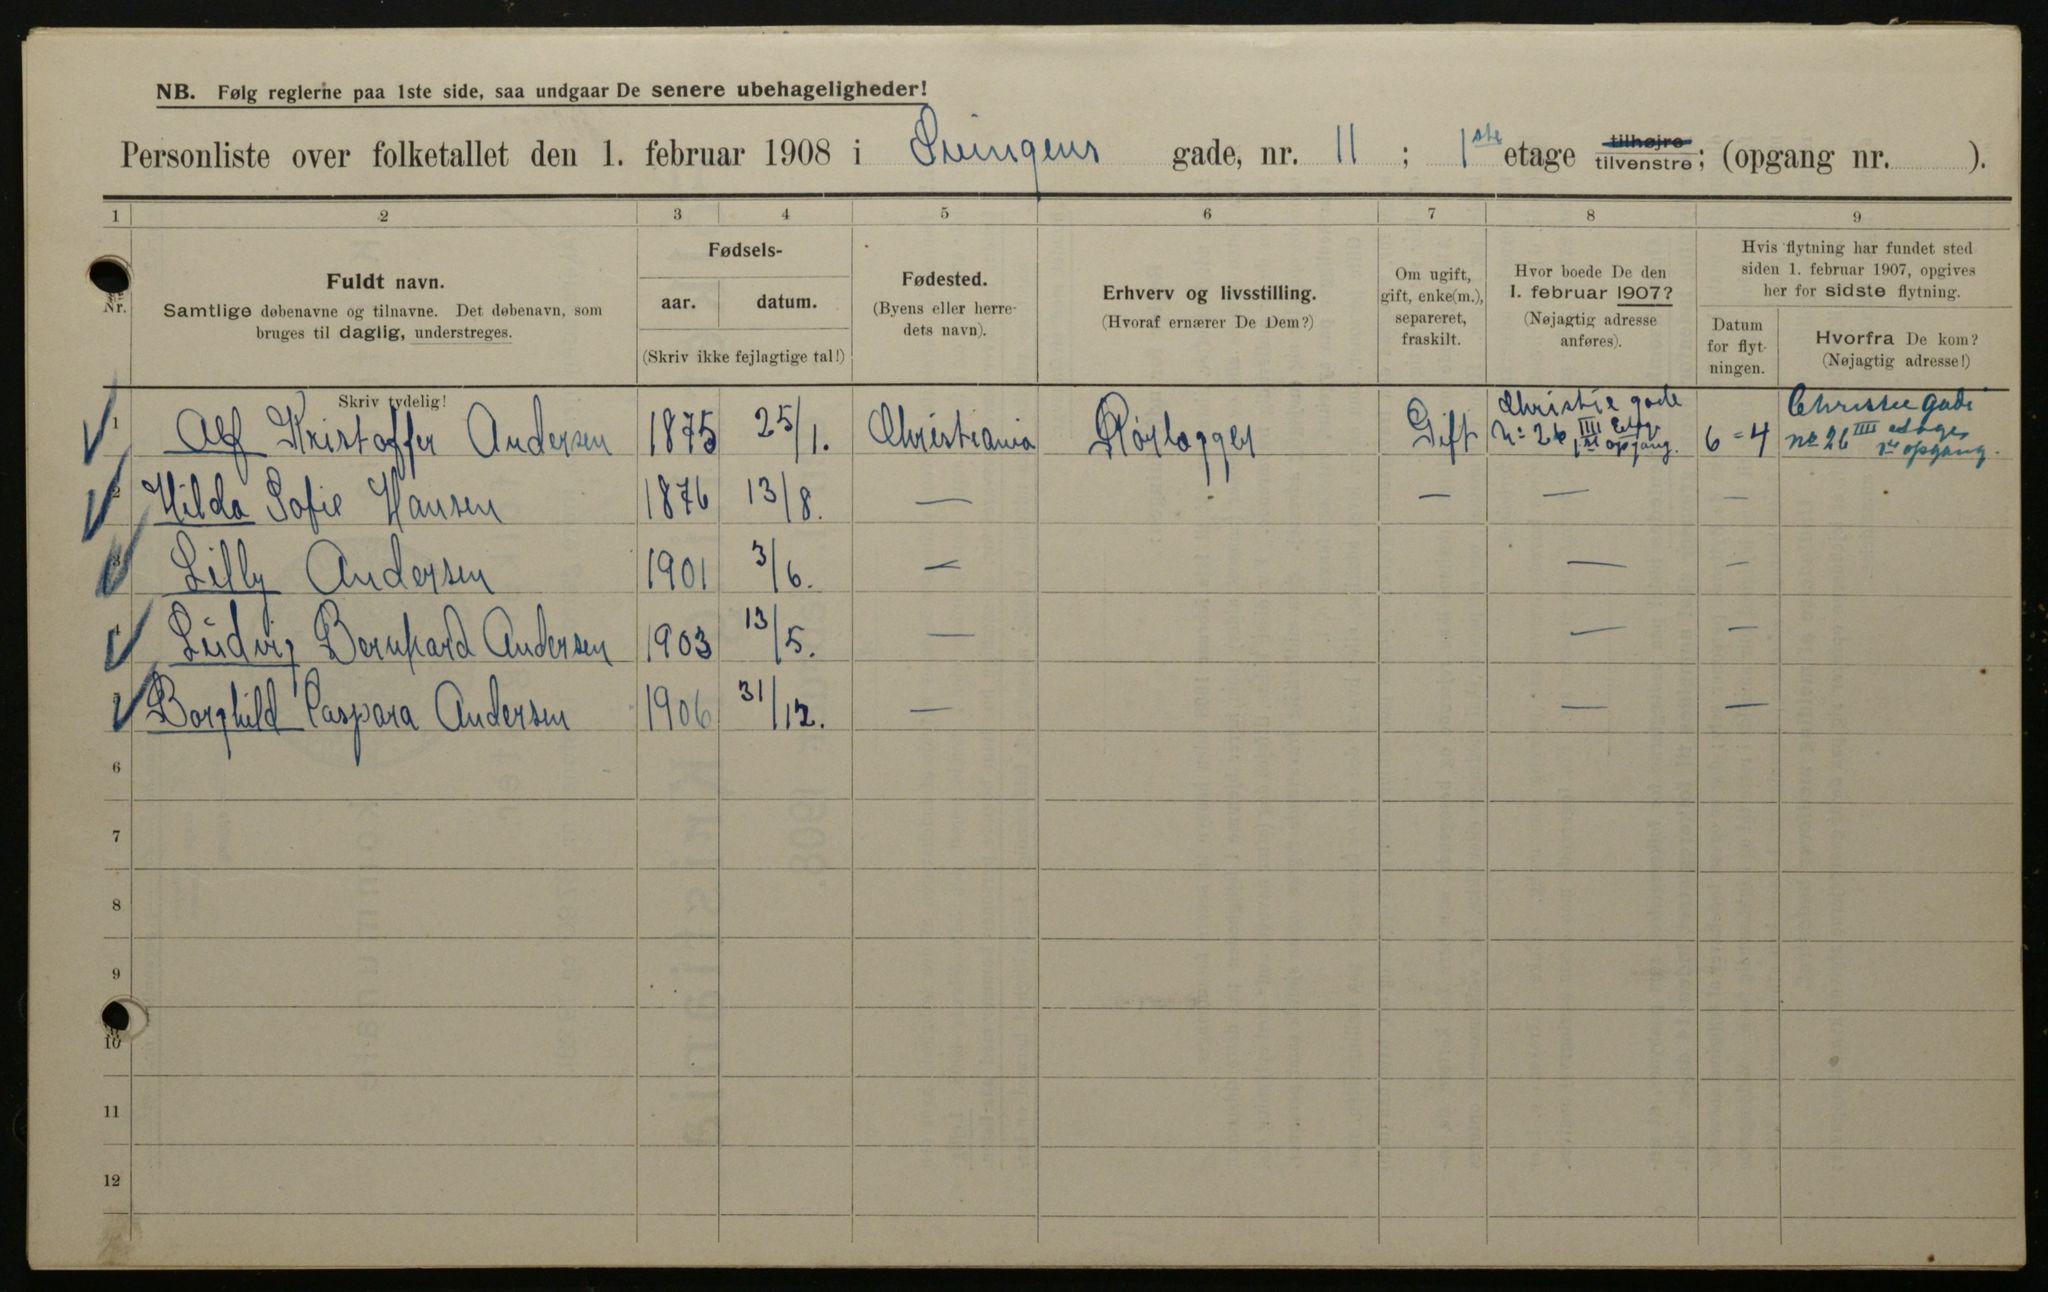 NB. Følg reglerne paa 1ste side, saa undgaar De senere ubehageligheder!
Personliste over folketallet den 1. februar 1908 i Svingens gade, nr. 11 ; 1ste etage tilhøjre tilvenstre; (opgang nr. ).
1 2 3 4 5 6 7 8 9
Nr.
Fuldt navn.
Samtlige døbenavne og tilnavne. Det døbenavn, som
bruges til daglig, understreges.
Skriv tydelig!
Fødsels-
aar. datum.
(Skriv ikke fejlagtige tal!)
Fødested.
(Byens eller herre-
dets navn).
Erhverv og livsstilling.
(Hvoraf ernærer De Dem?)
Om ugift,
gift, enke(m.),
separeret,
fraskilt.
Hvor boede De den
1. februar 1907?
(Nøjagtig adresse
anføres).
Hvis flytning har fundet sted
siden 1. februar 1907, opgives
her for sidste flytning.
Datum
for flyt-
ningen.
Hvorfra De kom?
(Nøjagtig adresse!)
1 Alf Kristoffer Andersen 1875 25/1. Christiania Rørlægger Gift Christie gade
No 26 IIII Etg.
1st opgang. 6 = 4 Christie gade
no 26 IIII etages
1ste opgang.
2 Hilda Sofie Hansen 1876 13/8. — — — —
3 Lilly Andersen 1901 3/6. — — —
4 Ludvig Bernhard Andersen 1903 13/5. — — —
5 Borghild Caspara Andersen 1906 31/12. — — —
6
7
8
9
10
11
12